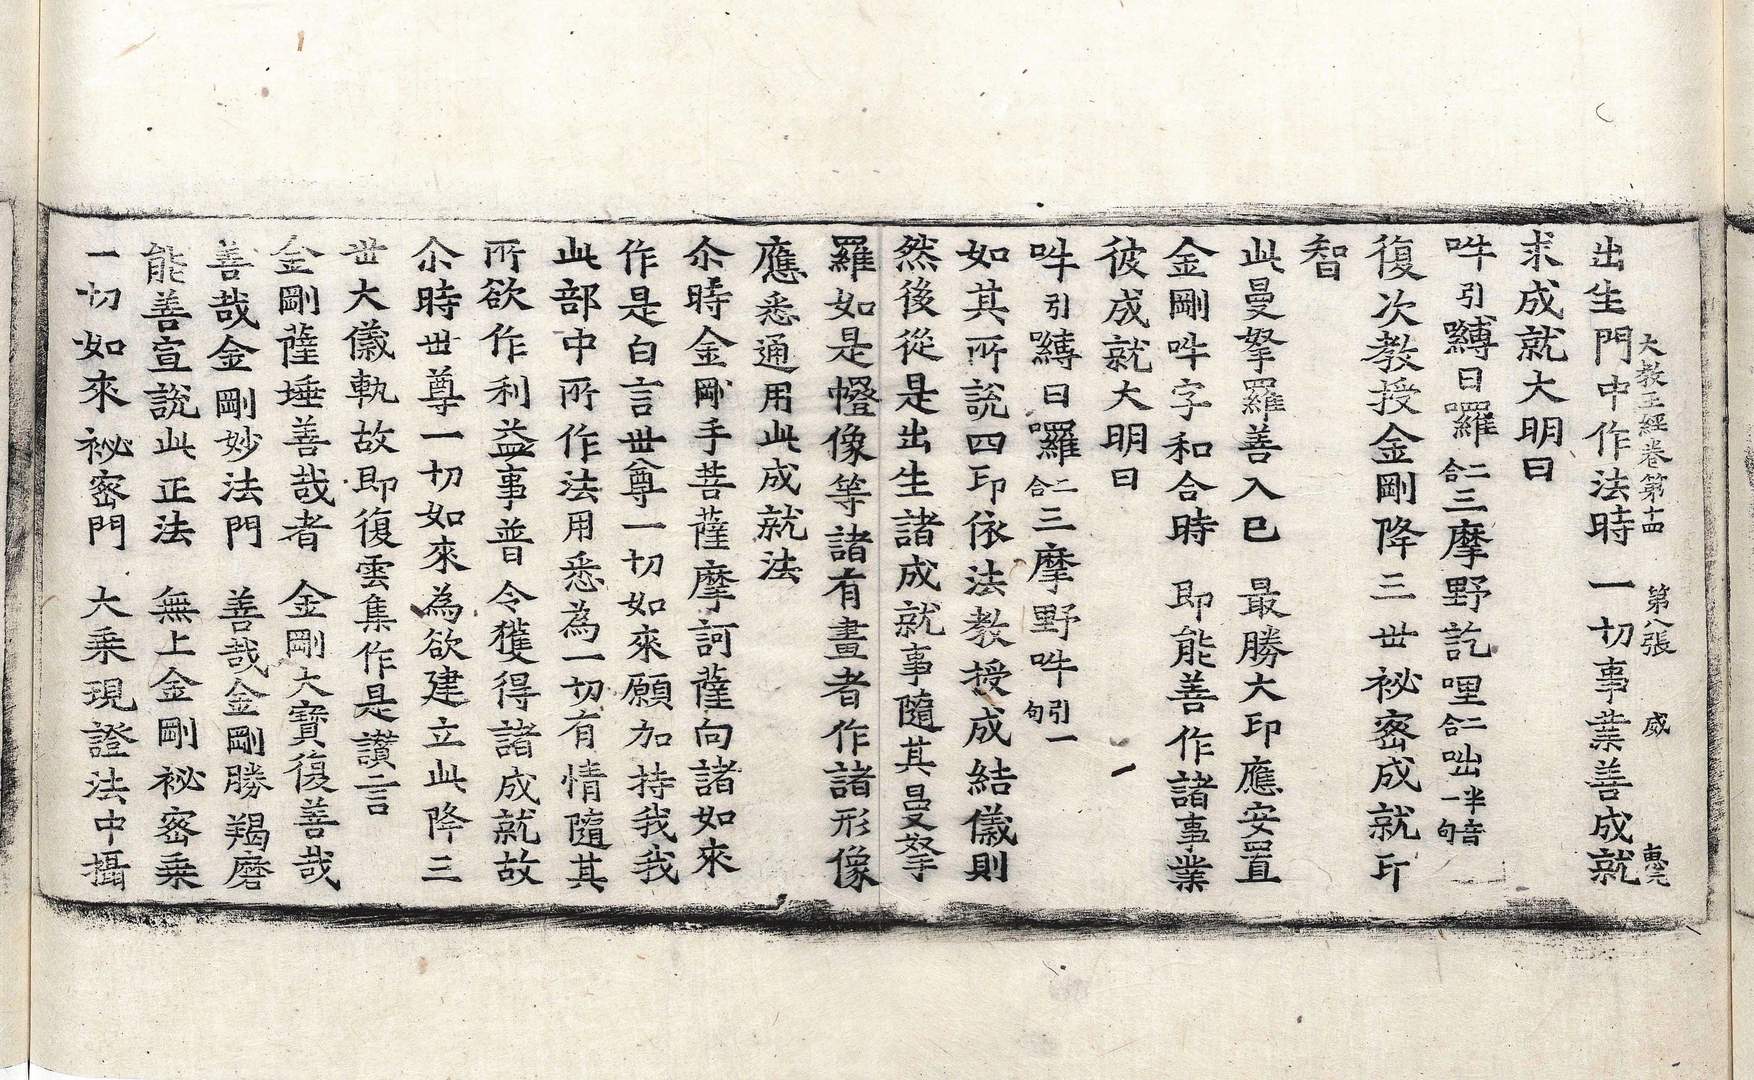 大教王經卷第十四　第八張　威　惠元
出生門中作法時　一切事業善成就
求成就大明曰
吽引嚩日囉二合三摩野訖哩二合咄半音一句
復次教授金剛降三世祕密成就印
智
此曼拏羅善入已　最勝大印應安置
金剛吽字和合時　即能善作諸事業
彼成就大明曰
吽引嚩日囉二合三摩野吽引一句
如其所說四印依法教授成結儀則
然後從是出生諸成就事隨其曼拏
羅如是㡧像等諸有畫者作諸形像
應悉通用此成就法
尒時金剛手菩薩摩訶薩向諸如來
作是白言世尊一切如來願加持我我
此部中所作法用悉為一切有情隨其
所欲作利益事普令獲得諸成就故
尒時世尊一切如來為欲建立此降三
世大儀軌故即復雲集作是讃言
金剛薩埵善哉者　金剛大寶復善哉
善哉金剛妙法門　善哉金剛勝羯磨
能善宣說此正法　無上金剛祕密乗
一切如來祕密門　大乗現證法中攝